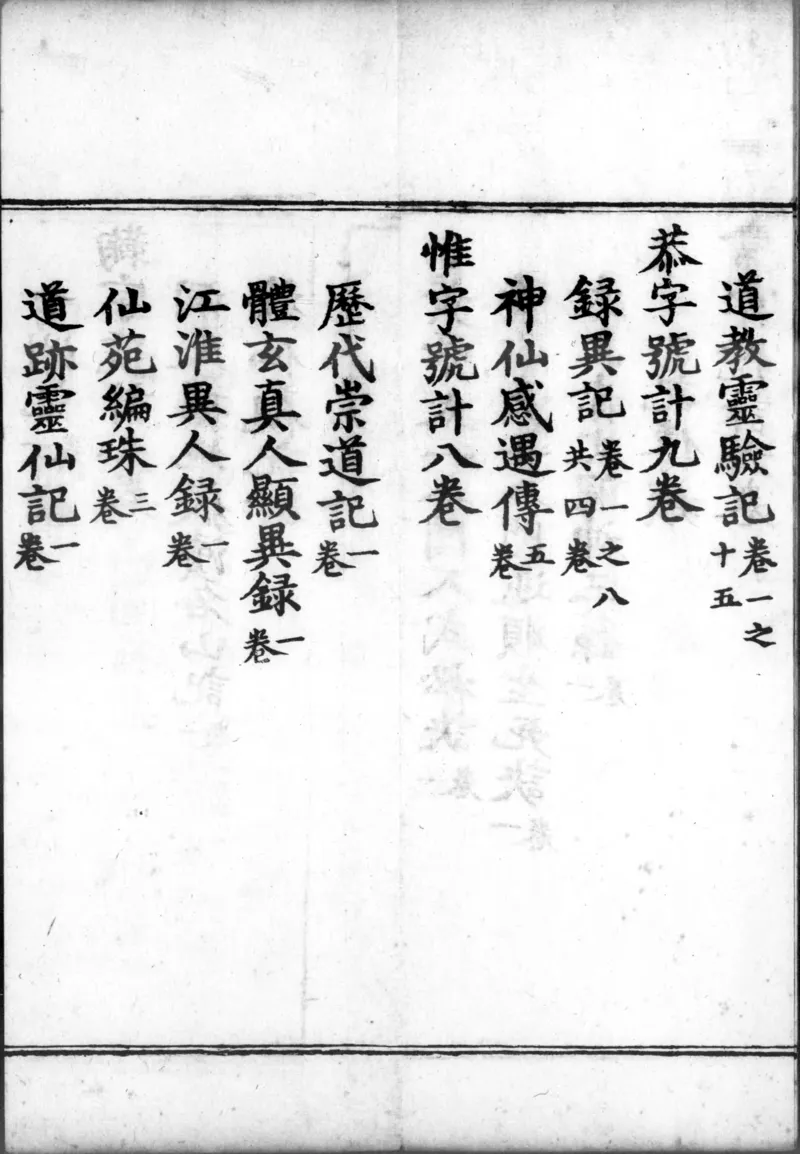 道教靈驗記卷一之十五
恭字號計九卷
録異記卷一之八共四卷
神仙感遇傳五卷
惟字號計八卷
歷代崇道記一卷
體玄真人顯異録一卷
江淮異人録一卷
仙苑編珠三卷
道跡靈仙記一卷